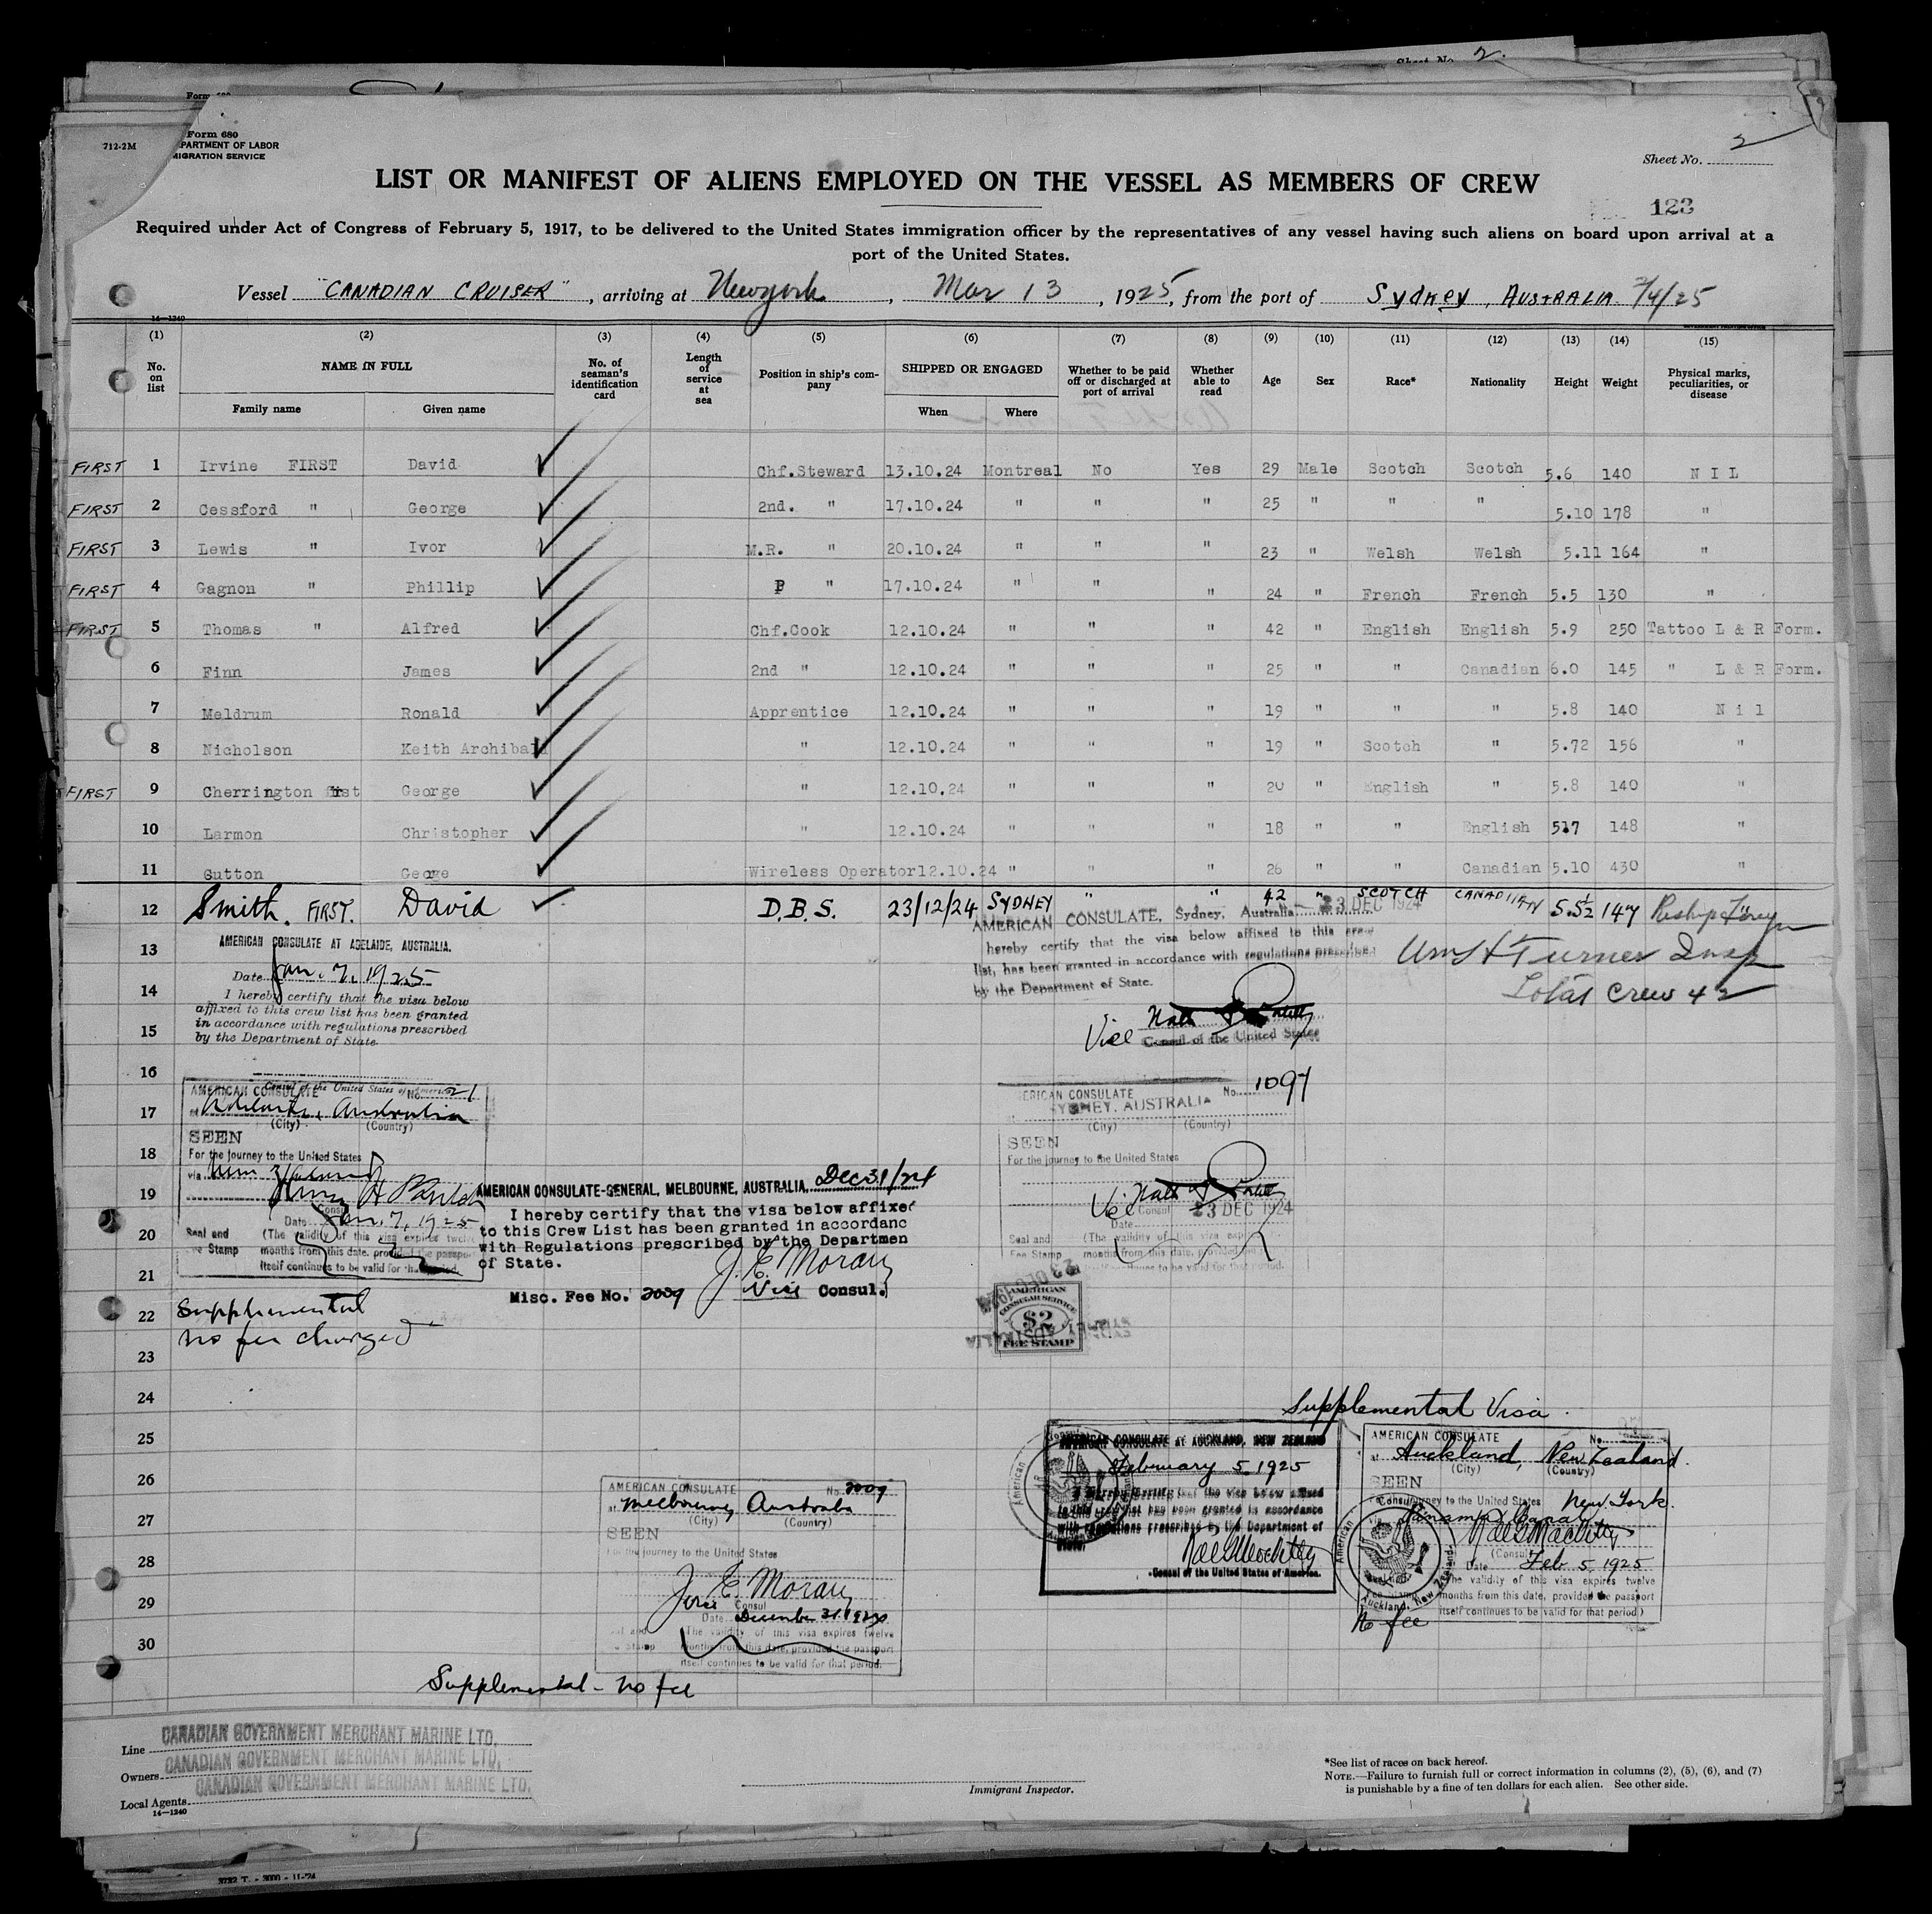 Sheet No. 2.
Form 680
712-2M
Form 680
PARTMENT OF LABOR
MIGRATION SERVICE
Sheet No. 2
LIST OR MANIFEST OF ALIENS EMPLOYED ON THE VESSEL AS MEMBERS OF CREW
123
Required under Act of Congress of February 5, 1917, to be delivered to the United States immigration officer by the representatives of any vessel having such aliens on board upon arrival at a
port of the United States.
Vessel "CANADIAN CRUISER", arriving at Newyork, Mar 13, 1925, from the port of Sydney, AUSTRALIA 2/4/25
14—1240
(1) (2) (3) (4) (5) (6) (7) (8) (9) (10) (11) (12) (13) (14) (15)
No. on list NAME IN FULL No. of seaman's identification card Length of service at sea Position in ship's company SHIPPED OR ENGAGED Whether to be paid off or discharged at port of arrival Whether able to read Age Sex Race* Nationality Height Weight Physical marks, peculiarities, or disease
Family name Given name When Where
FIRST 1 Irvine FIRST David Chf.Steward 13.10.24 Montreal No Yes 29 Male Scotch Scotch 5.6 140 N I L
FIRST 2 Cessford " George 2nd. " 17.10.24 " " " 25 " " " 5.10 178 "
FIRST 3 Lewis " Ivor M.R. " 20.10.24 " " " 23 " Welsh Welsh 5.11 164 "
FIRST 4 Gagnon " Phillip P " 17.10.24 " " " 24 " French French 5.5 130 "
FIRST 5 Thomas " Alfred Chf.Cook 12.10.24 " " " 42 " English English 5.9 250 Tattoo L & R Form.
6 Finn James 2nd " 12.10.24 " " " 25 " " Canadian 6.0 145 " L & R Form.
7 Meldrum Ronald Apprentice 12.10.24 " " " 19 " " " 5.8 140 N i l
8 Nicholson Keith Archibald " 12.10.24 " " " 19 " Scotch " 5.72 156 "
FIRST 9 Cherrington first George " 12.10.24 " " " 20 " English " 5.8 140 "
10 Larmon Christopher " 12.10.24 " " " 18 " " English 5.7 148 "
11 Sutton George Wireless Operator 12.10.24 " " " 26 " " Canadian 5.10 430 "
12 Smith. FIRST. David D.B.S. 23/12/24 SYDNEY " " 42 " SCOTCH CANADIAN 5.5½ 147
AMERICAN CONSULATE, Sydney, Australia 23 DEC 1924
hereby certify that the visa below affixed to this crew
list, has been granted in accordance with regulations prescribed
by the Department of State.
Vice Consul of the United States
Wm H Turner Insp
Total Crew 42
13
14
15
16
17
18
19
20
21
22
23
24
25
26
27
28
29
30
AMERICAN CONSULATE AT ADELAIDE, AUSTRALIA.
Date Jan. 7, 1925
I hereby certify that the visa below
affixed to this crew list has been granted
in accordance with regulations prescribed
by the Department of State.
Consul of the United States of America
AMERICAN CONSULATE No. 21
at Adelaide, Australia
(City) (Country)
SEEN
For the journey to the United States
via
Consul
Date Jan. 7, 1925
Seal and Fee Stamp
(The validity of this visa expires twelve
months from this date, provided the passport
itself continues to be valid for that period.
Supplemental
no fee charged
AMERICAN CONSULATE-GENERAL, MELBOURNE, AUSTRALIA, Dec 31/24
I hereby certify that the visa below affixed
to this Crew List has been granted in accordanc
with Regulations prescribed by the Departmen
of State.
J. E. Moran
Misc. Fee No. 2009 Vice Consul.
ERICAN CONSULATE No. 1097
SYDNEY, AUSTRALIA
(City) (Country)
SEEN
For the journey to the United States
Vice Consul
Date 23 DEC 1924
Seal and Fee Stamp
(The validity of this visa exp
months from this date, provided
itself continues to be valid for that period.
AMERICAN
CONSULAR SERVICE
$2
FEE STAMP
Supplemental Visa.
AMERICAN CONSULATE AT AUCKLAND, NEW ZEALAND
February 5 1925
I hereby certify that the visa below affixed
to this crew list has been granted in accordance
with regulations prescribed by the Department of
State.
Consul of the United States of America.
AMERICAN CONSULATE No.
at Auckland, New Zealand.
(City) (Country)
SEEN
journey to the United States New York.
via Panama Canal
(Consul
Date Feb 5, 1925
The validity of this visa expires twelve
months from this date, provided the passport
itself continues to be valid for that period)
No fee
AMERICAN CONSULATE No. 2009
at Melbourne, Australia
(City) (Country)
SEEN
For the journey to the United States
J. E. Moran
Vice Consul
Date December 31, 1924
The validity of this visa expires twelve
months from this date, provided the passport
itself continues to be valid for that period.
Supplemental - no fee
Line CANADIAN GOVERNMENT MERCHANT MARINE LTD.
Owners CANADIAN GOVERNMENT MERCHANT MARINE LTD.
Local Agents CANADIAN GOVERNMENT MERCHANT MARINE LTD.
14—1240
Immigrant Inspector.
*See list of races on back hereof.
NOTE.—Failure to furnish full or correct information in columns (2), (5), (6), and (7)
is punishable by a fine of ten dollars for each alien. See other side.
3732 T. - 3000 - 11-24